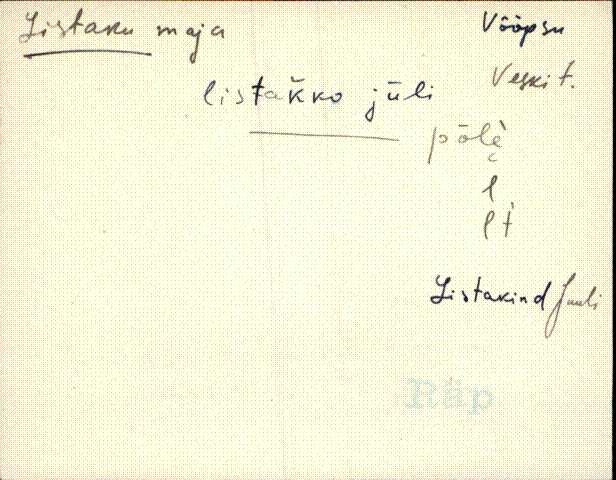 Listaku maja
Võõpsu
Veski t.
listakko jūli
pōlè
l
lt
Listakind Juuli
Räp